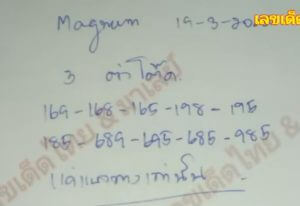 เลขเด็ด
Magnum 19-3-20
3 ตัวโต๊ด
169-168-165-198-195
185-689-695-685-985
แค่แนวทางเท่านั้น
เลขเด็ดไทย & มาเลย์